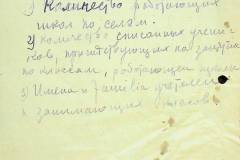 1) Количество работающих
школ по, селам.
2) количество списанных учени-
ков, присутствующих на занятиях
по классам, работающей школы
3) Имена и familia
занимающих